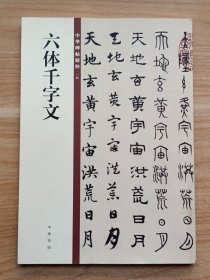 天地玄黃宇宙洪荒日
天地玄黃宇宙洪荒日
天地玄黃宇宙洪荒日月
天地玄黃宇宙洪荒日月
中華碑帖精粹
六体千字文
中華書局